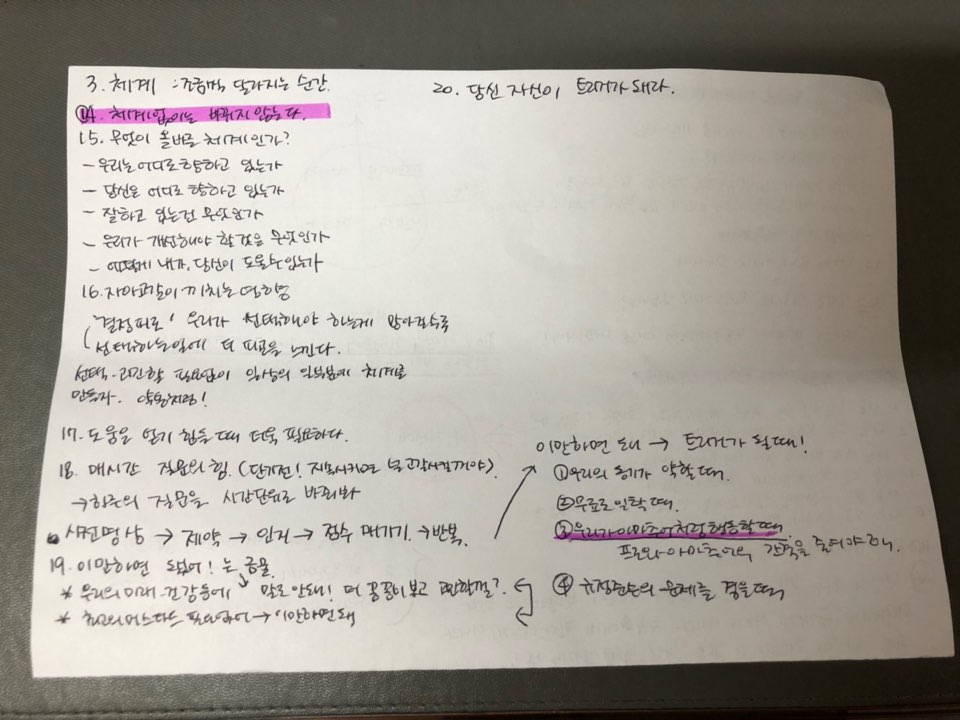 3. 체계 : 조금씩 달라지는 순간.
14. 체계 없이는 바뀌지 않는다.
15. 무엇이 올바른 체계인가?
- 우리는 어디로 향하고 있는가
- 당신은 어디로 향하고 있는가
- 잘하고 있는건 무엇인가
- 우리가 개선해야 할것은 무엇인가
- 어떻게 내가, 당신이 도울수있는가
16. 자아고갈이 미치는 영향
"결정피로" 우리가 선택해야 하는게 많아질수록
선택하는일에 더 피곤을 느낀다.
선택·고민할 필요없이 일상의 일부분에 체계를
만들자.
17. 도움을 얻기 힘들 때 더욱 필요하다.
18. 매시간 질문의 힘. (단기전!
→ 하루의 질문을 시간단위로 바꿔봐
사전명상 → 제약 → 인지 → 점수 매기기 → 반복.
19. 이만하면 됐어! 는 금물
* 우리의 미래·건강등에 말도안돼! 더 꼼꼼이보고
* 최고의 머스타드 필요없어 → 이만하면 돼
20. 당신 자신이 트리거가 돼라.
이만하면 돼 → 트리거가 될때!
① 우리의 동기가 약할때.
② 무료로 일할 때.
③ 우리가 아마추어처럼 행동할때.
프로와 아마추어의 간극을 줄여야 해.
④ 규정준수의 문제를 겪을때